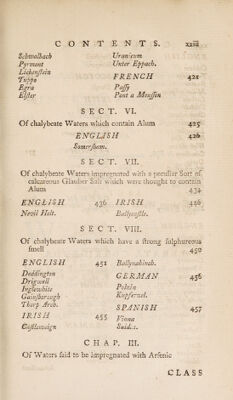 CONTENTS. xxiii
Schwalbach Uranicum
Pyrmont Unter Eppach.
Lichenstein FRENCH 421
Tuppo
Egra Passy
Elster Pont a Mousson
SECT. VI.
Of chalybeate Waters which contain Alum 425
ENGLISH 426
Somersham.
SECT. VII.
Of chalybeate Waters impregnated with a peculiar Sort of
calcareous Glauber Salt which were thought to contain
Alum 434
ENGLISH 436 IRISH 446
Nevil Holt. Ballycastle.
SECT. VIII.
Of chalybeate Waters which have a strong sulphureous
smell 450
ENGLISH 451 Ballynahinch.
Deddington GERMAN 456
Drigwell
Inglewhite Polzin
Gainsborough Kupfernel.
Thorp Arch. SPANISH 457
IRISH 455 Viana
Castlemaign
CHAP. III.
Of Waters said to be impregnated with Arsenic
CLASS